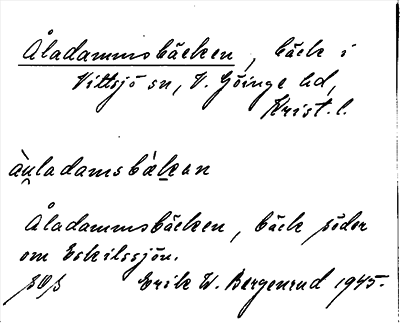 Åladammsbäcken, bäck i
Vittsjö sn, V. Göinge hd,
Krist. l.
àu̯ladamsbä̀kan
Åladammsbäcken, bäck söder
om Eskilssjön.
Erik W. Bergenrud 1945.